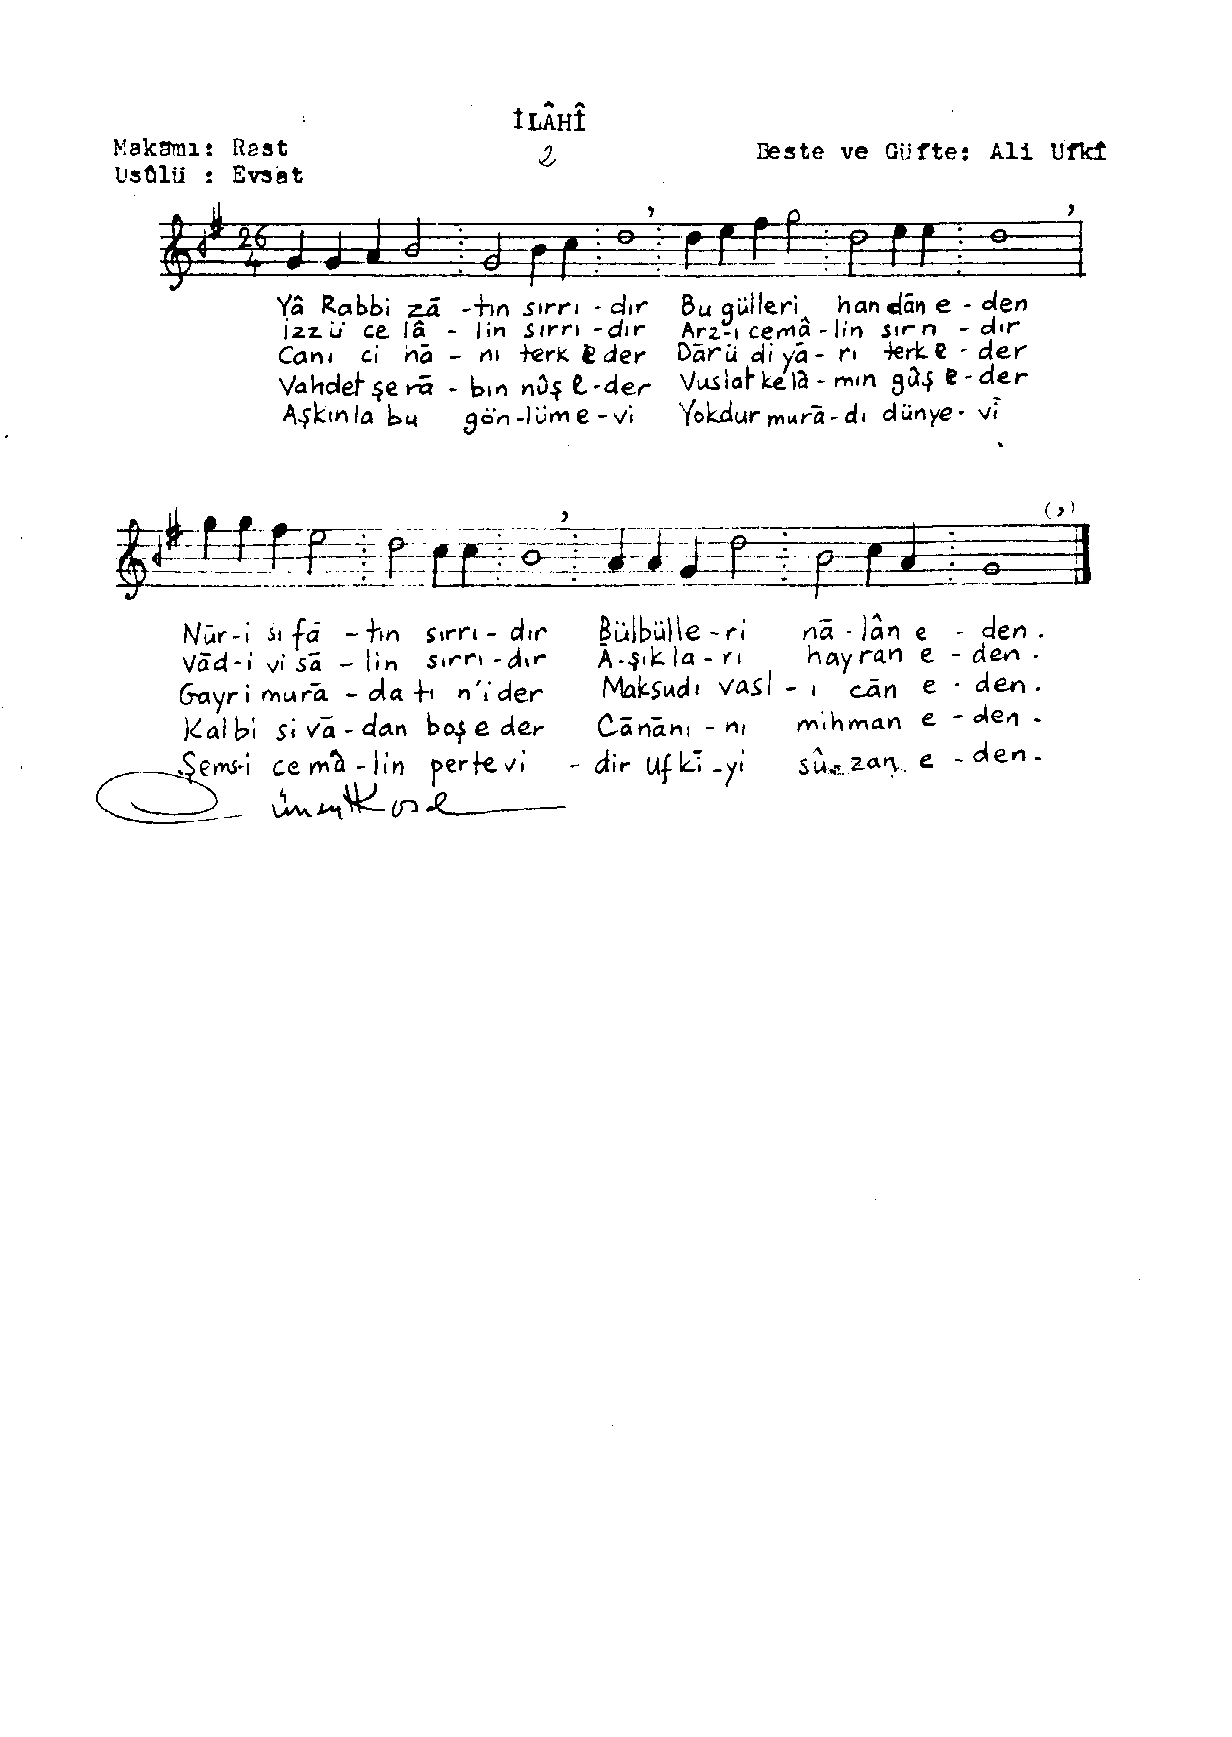 İLÂHÎ
Makamı: Rast
2
Beste ve Güfte: Ali Ufkî
Usûlü : Evsat
26
4
Yâ Rabbi zā -tın sırrı - dır Bu gülleri handān e - den
İzzü ce lâ - lin sırrı -dır Arz-ı cemâ-lin sırrı - dır
Canı ci nā - nı terk e der Dārü di yā - rı terk e - der
Vahdet şe rā - bın nûş e -der Vuslat kelâ - mın gûş e - der
Aşkınla bu gön-lüm e -vi Yokdur murā-dı dünye - vî
Nūr-i sı fā -tın sırrı - dır Bülbülle -ri nā - lân e - den .
Vād-i vi sā - lin sırrı -dır Ā -şıkla - rı hayran e - den .
Gayri murā - da tı n'i der Maksudı vasl - ı cān e - den .
Kalbi si vā - dan boş e der Cānānı - nı mihman e - den .
Şems-i ce mâ -lin pertevi - dir Ufkī -yi sû- zan e - den .
(,)